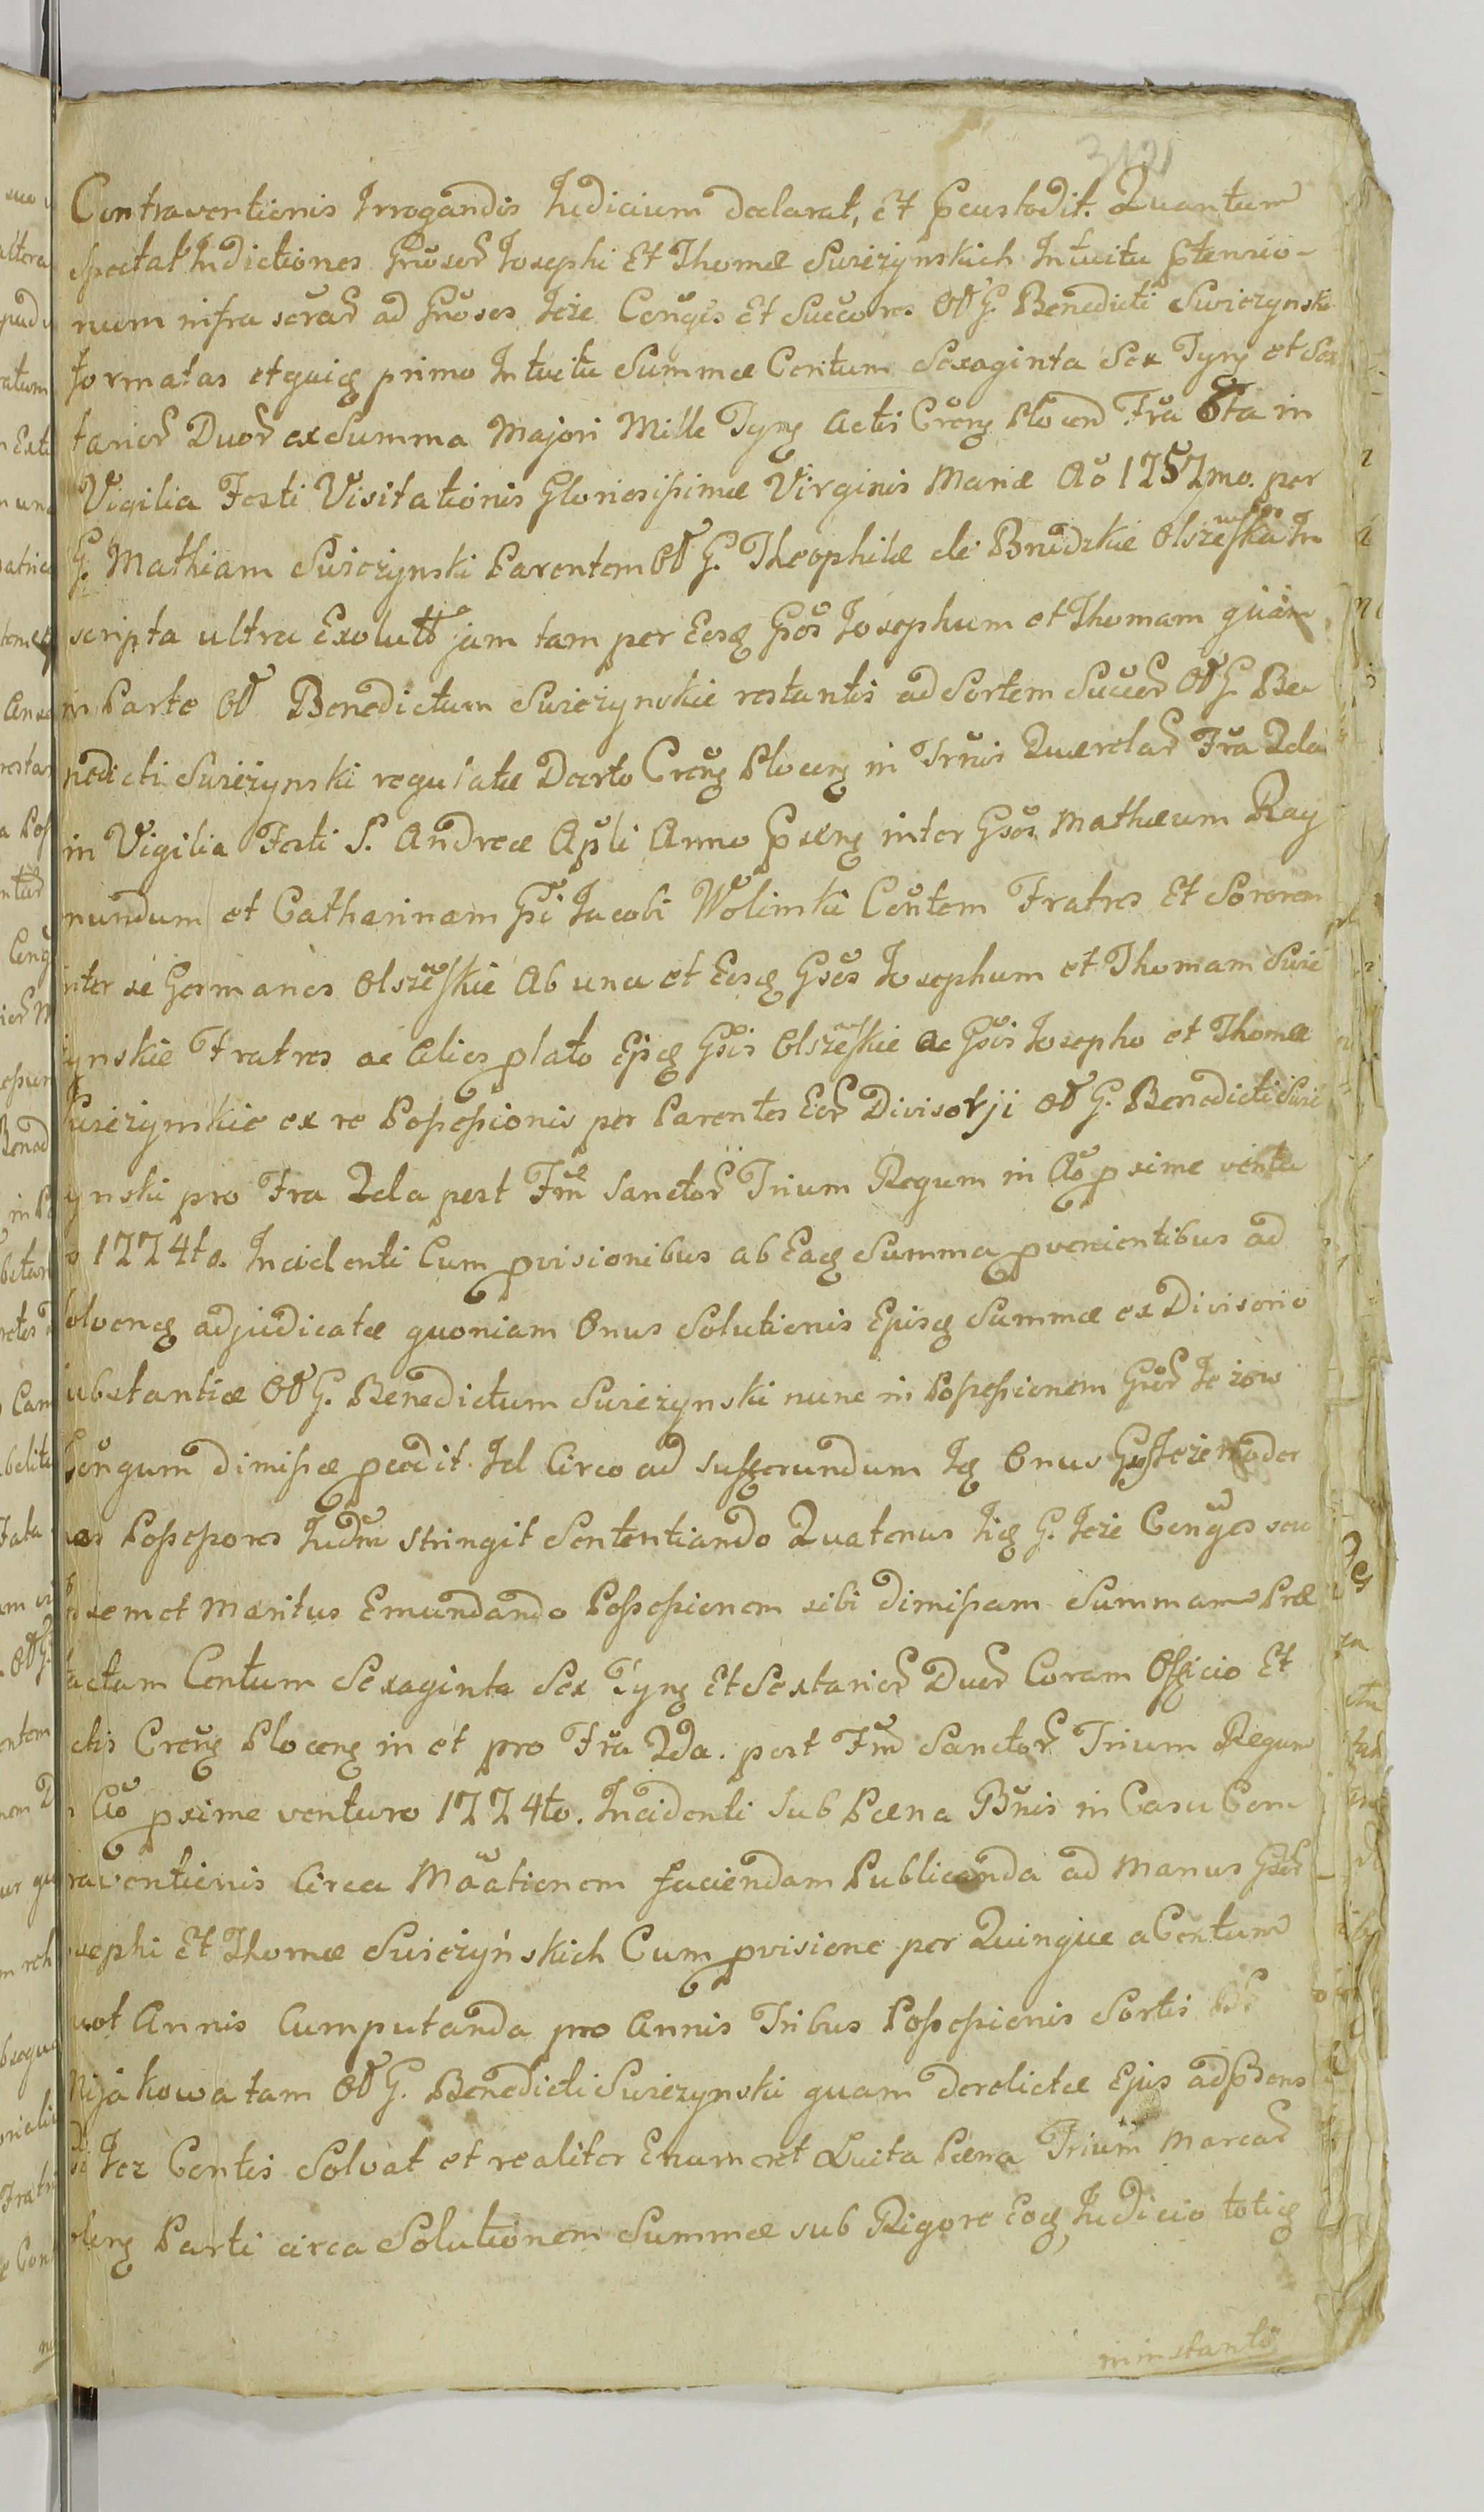 3121
Contraventionis Irrogandis Iudicium declarat, et pcustodit. Quantum
spectat Indictiones Gñosor Iosephi Et Thomæ Swiezynskich Intuitu ptensio-
num infra scrar ad Gñosos Jeże Conges Et Succores Ol G. Benedicti Swiezynski
formatas etquidq primo Intuitu Summæ Centum Sexaginta Sex Tynq et Sex
tarior Duor ex Summa Majori Mille Tynq Actis Crenq Plocen Fra 6ta in
Vigilia Festi Visitationis Gloriosissimæ Virginis Mariæ Ao 1757mo. per
G. Mathiam Swiezynski Parentem Ol G. Theophilæ de Brudzkie Olszeska In
scripta ultra Exolutt jam tam per Eosq Gsos Iosephum et Thomam quam
in Parte Ol Benedictum Swiezynskie restantis ad Sortem Succer Ol G. Be
nedicti Swieżynski regulatæ Decrto Crenq Plocenq in Trnis Querelar Fra 2da
in Vigilia Festi S. Andreæ Apli Anno Pxenq inter Gsos Mathæum Ray
mundum et Catharinam Gsi Iacobi Wolinski Contem Fratres Et Sororem
inter se Germanos Olszeskie Ab una et Eosq Gsos Iosephum et Thomam Swie
zynskie Fratres ac Alios plato Ejsq Gsis Olszeskie ac Gsis Iosepho et Thomæ
Swiezynskie ex re Possessionis per Parentes Eor Divisorji Ol G. Benedicti Swie
ynski pro Fra 2da post Fm Sanctor Trium Regum in Ao pxime ventu
o 1774to. Incidenti Cum pvisionibus ab Eaq Summa pvenientibus ad
olvenq adjudicatæ quoniam Onus Solutionis Ejusq Summæ ex Divisorio
ubstantiæ Ol G. Benedictum Swiezynski nunc in Possessionem Gsor Jeżow
Congum dimissæ pcedit. Id Circo ad sufferundum Iq Onus Gsos Jeże moder
nos Possessores Iudm stringit Sententiando Quatenus Iiq G. Jeże Conges seu
semet Maritus Emundando Possessionem sibi dimissam Summam Præ
tactam Centum Sexaginta Sex Tynq Et Sextarior Duor Coram Officio Et
ctis Crenq Plocenq in et pro Fra 2da. post Fm Sanctor Trium Regum
n Ao pxime venturo 1774to. Incidenti sub Pæna Bnis in Casu Con
raventionis Circa Mãationem faciendam Publicanda ad Manus Gsor
osephi Et Thomæ Swiezyńskich Cum pvisione per Quinque a Centum
uot Annis Cumputanda pro Annis Tribus Possessionis Sortis
Nijakowa tam Ol G. Benedicti Swiezynski quam derelictæ Ejus ad psens
Jez Contis Solvat et realiter Enumeret Luita Pæna Trium Marcar
olenq Parti circa Solutionem Summæ sub Rigore Eoq Iudicio totiq
ininstanti